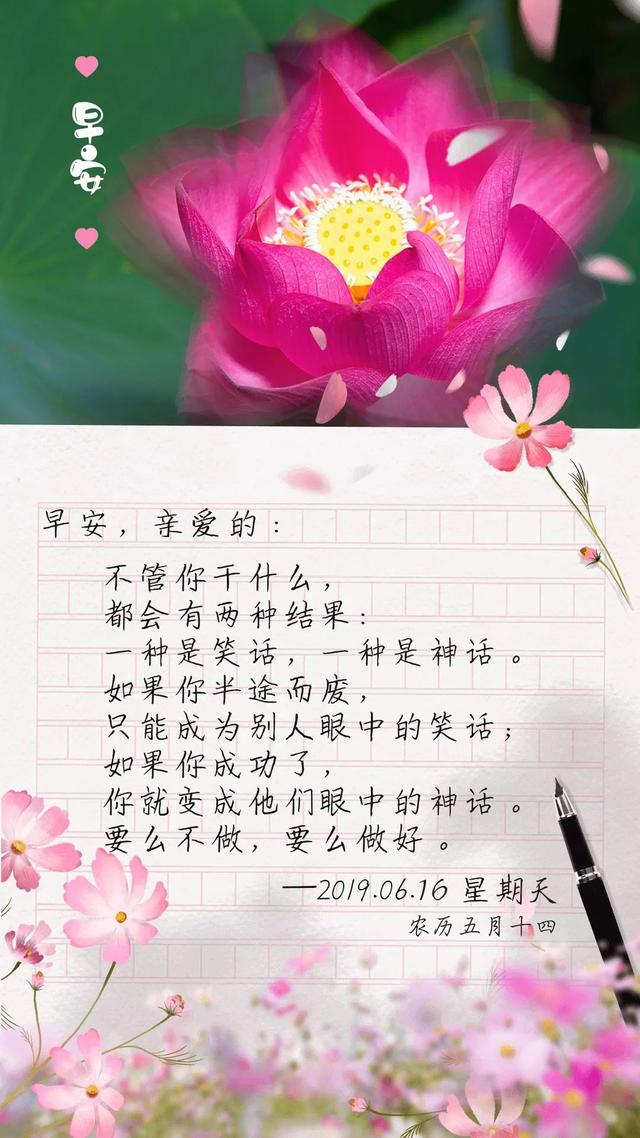 早安
早安，亲爱的：
不管你干什么，
都会有两种结果：
一种是笑话，一种是神话。
如果你半途而废，
只能成为别人眼中的笑话；
如果你成功了，
你就变成他们眼中的神话。
要么不做，要么做好。
—2019.06.16 星期天
农历五月十四